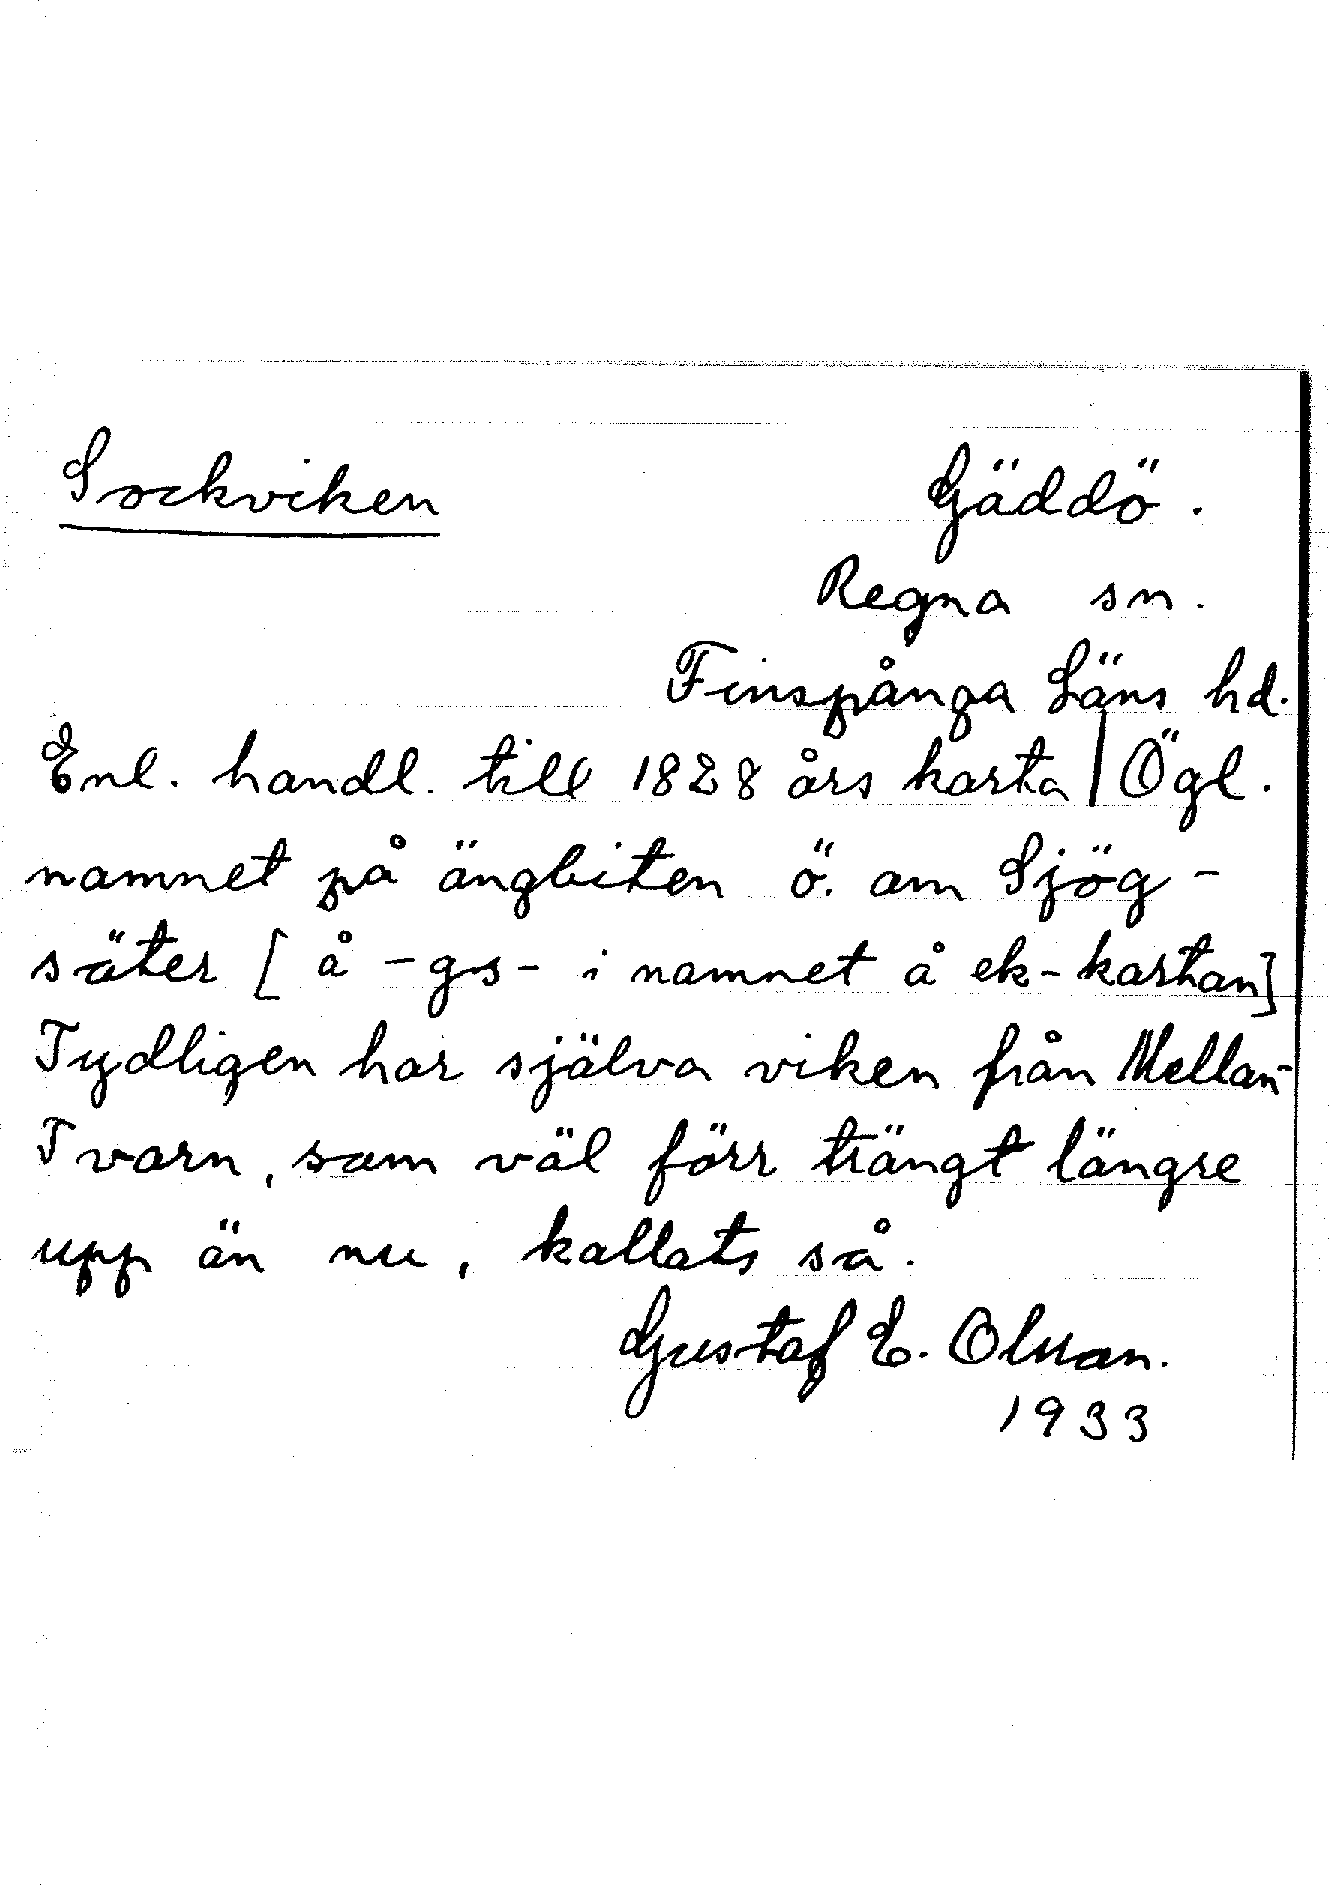 Sockviken Gäddö.
Regna sn.
Finspånga Läns hd.
Enl. handl. till 1828 års karta | Ögl.
namnet på ängbiten ö. om Sjög-
säter [å -gs- i namnet å ek-kartan]
Tydligen har själva viken från Mellan-
Tvarn, som väl förr trängt längre
upp än nu, kallats så.
Gustaf E. Olsson.
1933